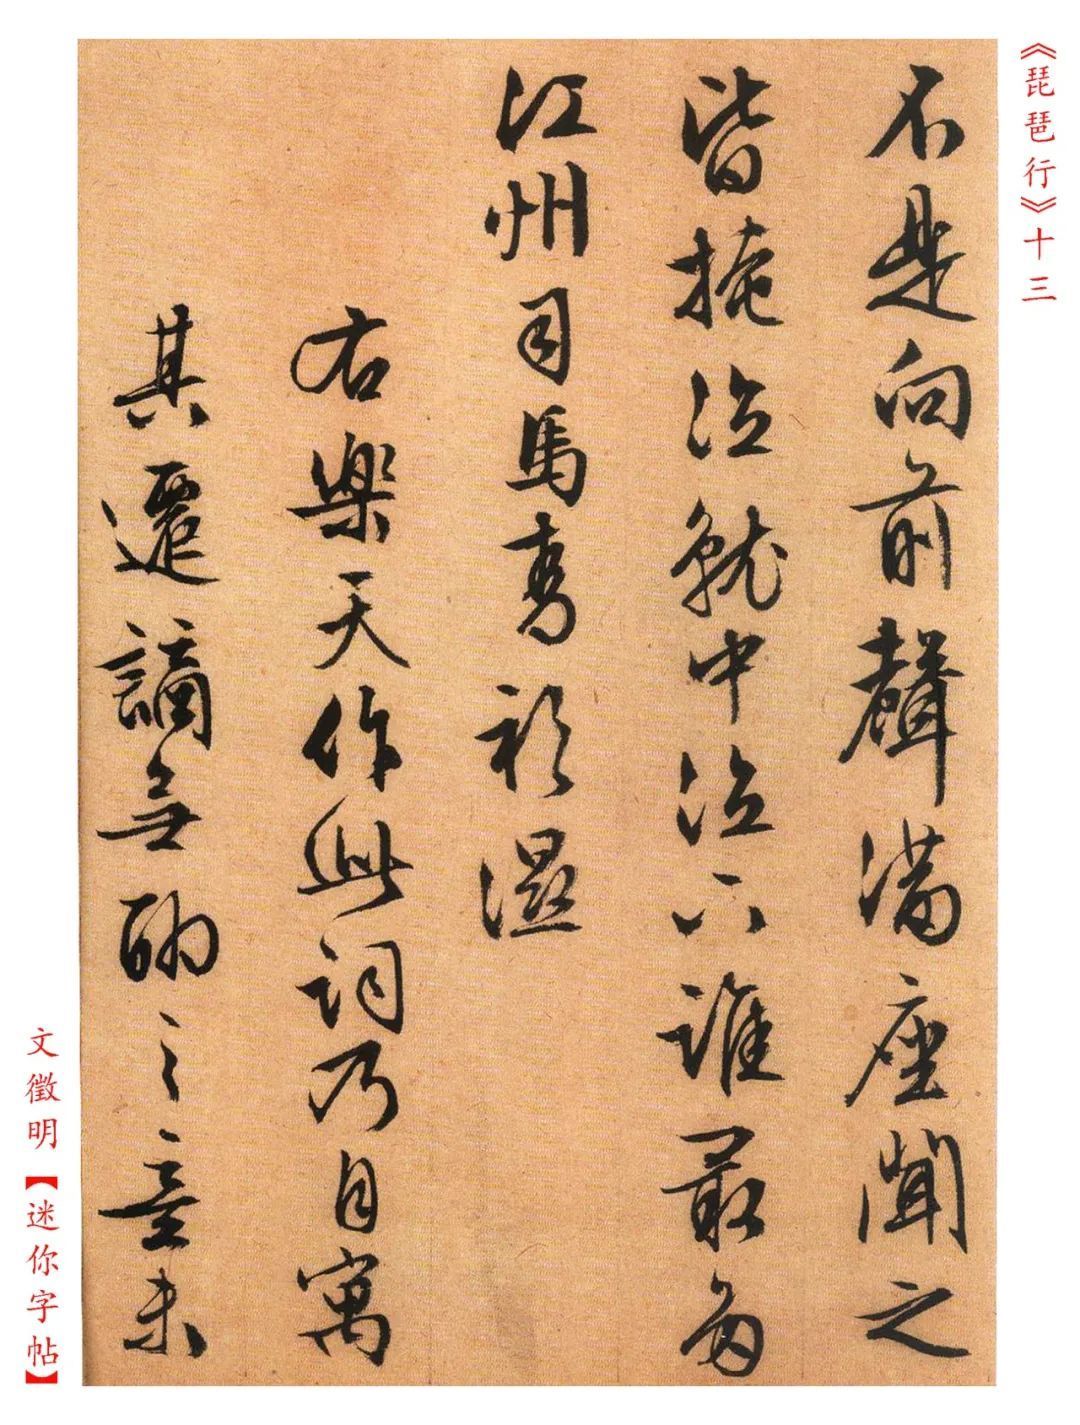 《琵琶行》十三
不是向前聲滿座聞之
皆掩泣就中泣下誰最多
江州司馬青衫濕
右樂天作此詞乃自寓
其遷謫無聊之意未
文徵明【迷你字帖】